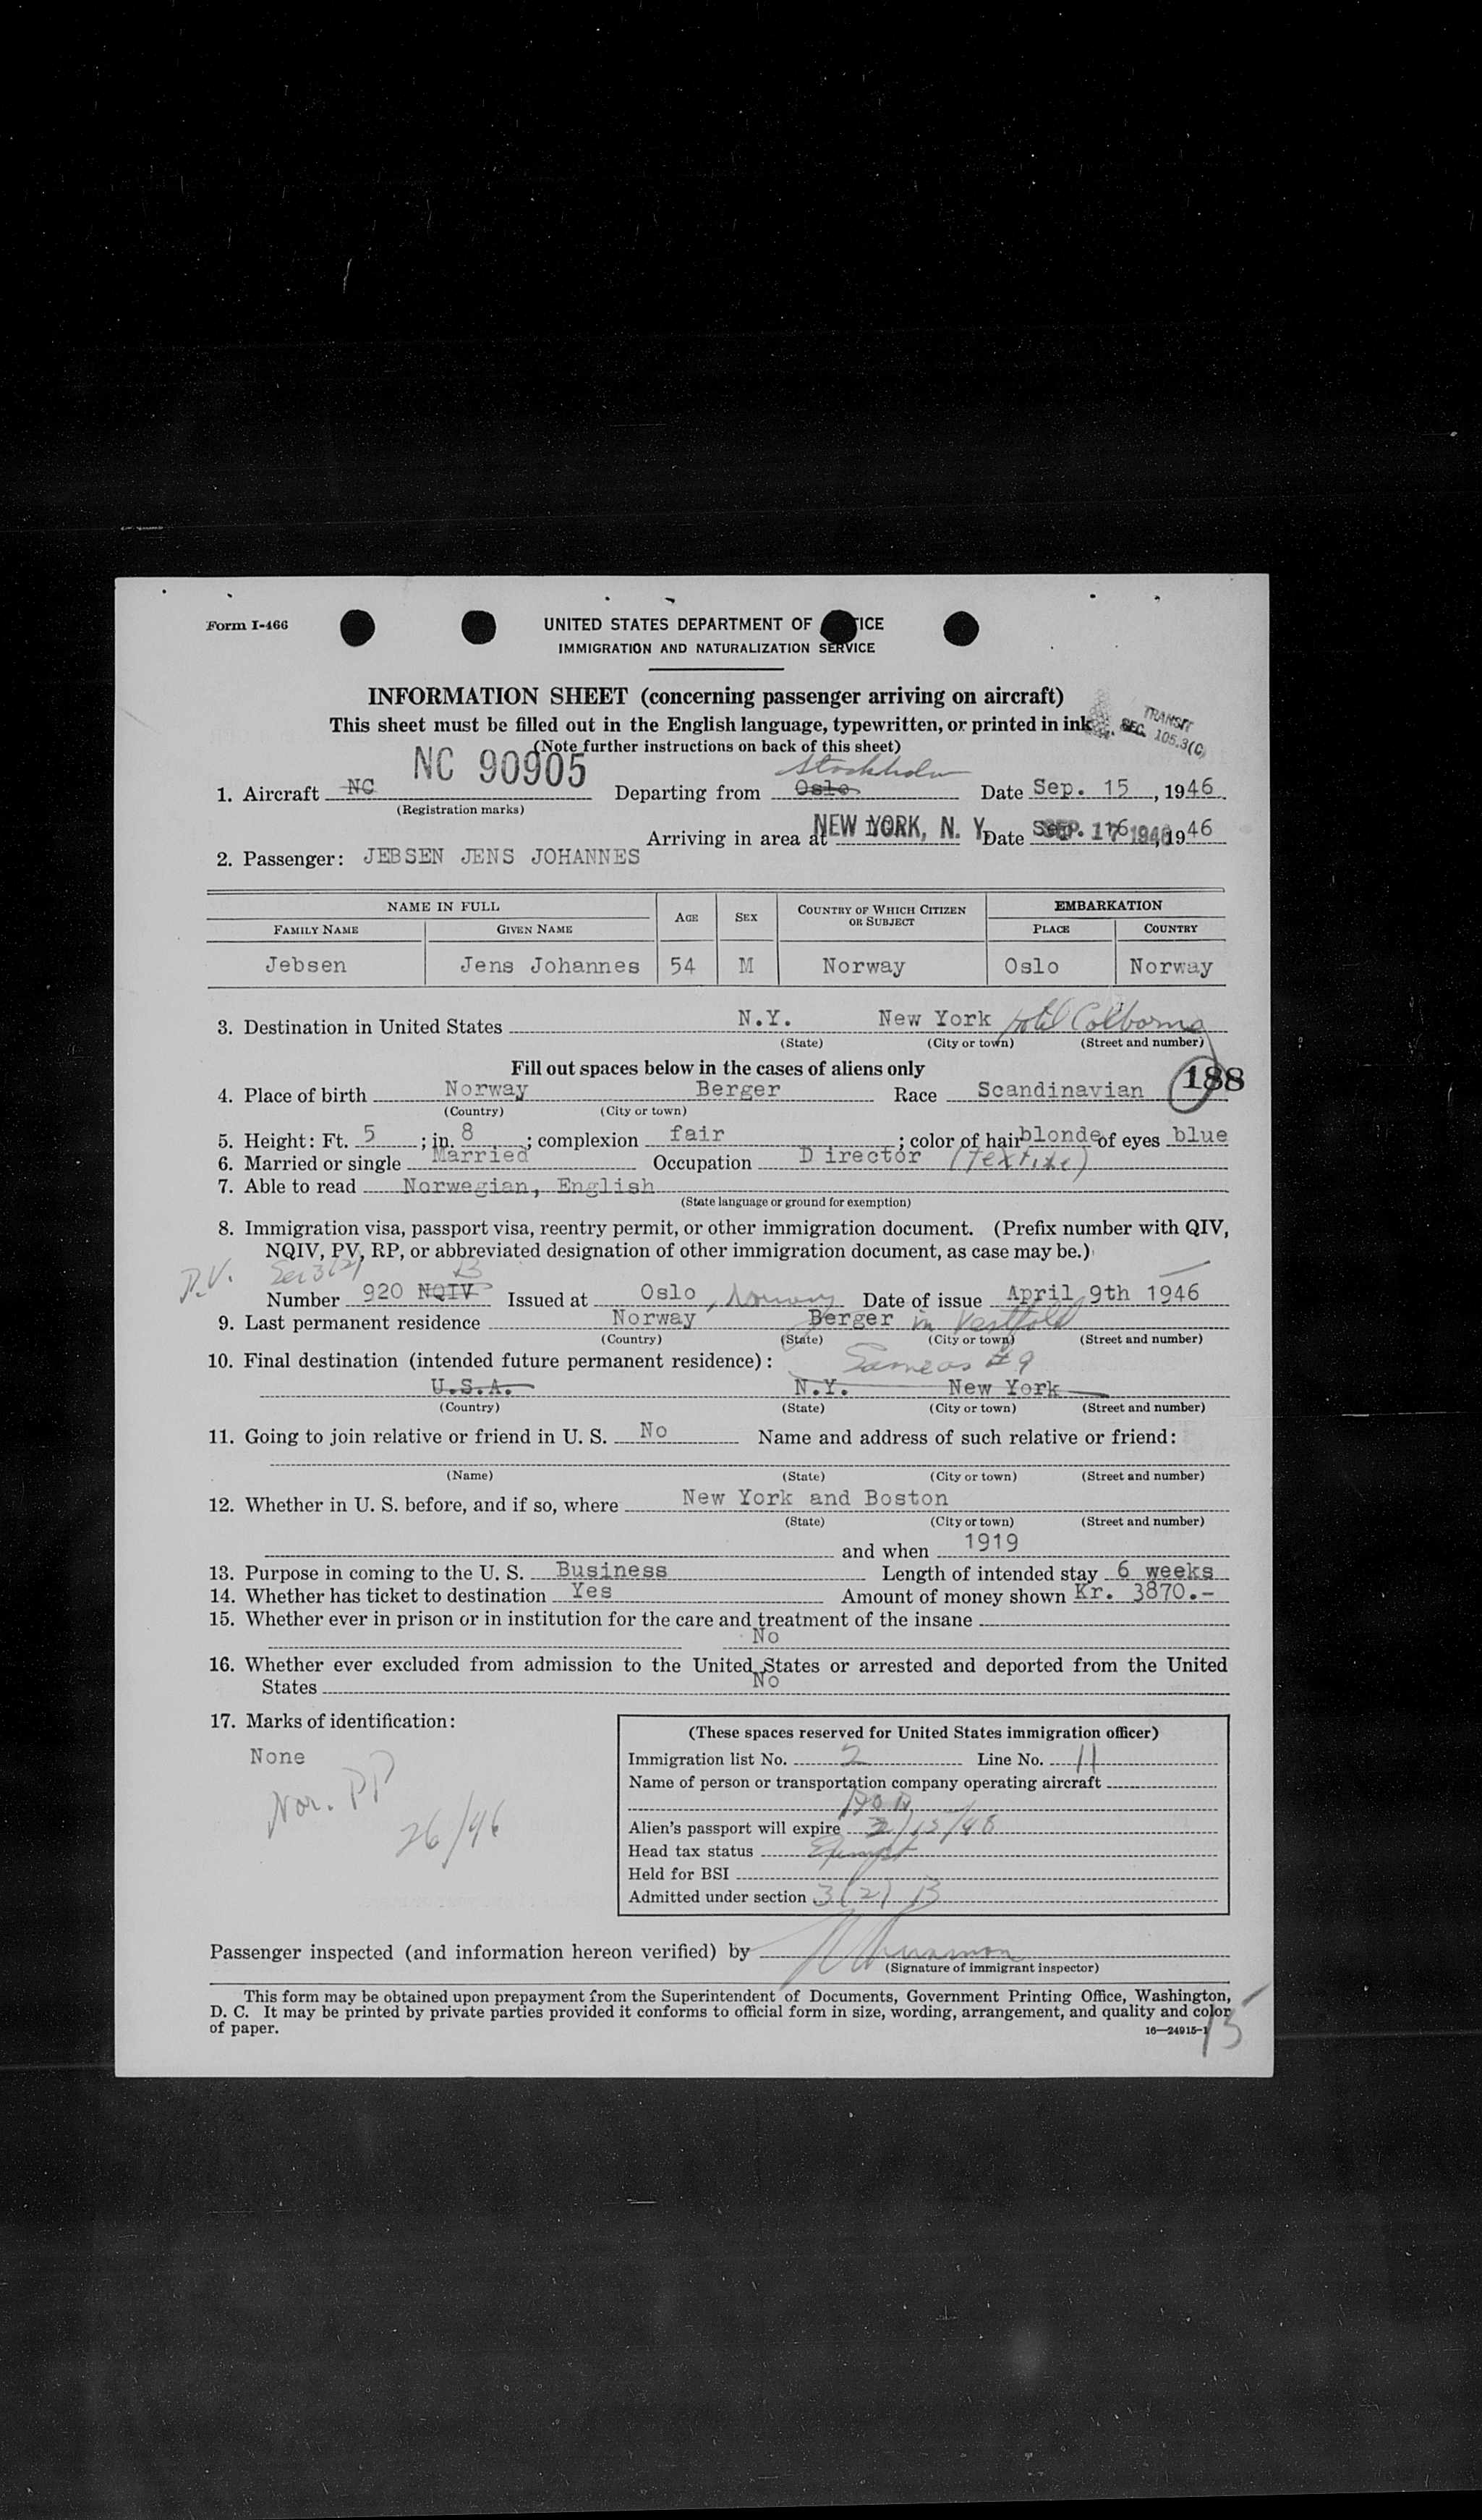 Form I-466
UNITED STATES DEPARTMENT OF ICE
IMMIGRATION AND NATURALIZATION SERVICE
INFORMATION SHEET (concerning passenger arriving on aircraft)
This sheet must be filled out in the English language, typewritten, or printed in ink.
TRANSIT
SEC. 105.3(C)
(Note further instructions on back of this sheet)
NC 90905 Stockholm
1. Aircraft NC Departing from Oslo Date Sep. 15, 1946
(Registration marks)
Arriving in area at NEW YORK, N. Y. Date SEP. 17 1946, 1946
2. Passenger: JEBSEN JENS JOHANNES
NAME IN FULL AGE SEX COUNTRY OF WHICH CITIZEN OR SUBJECT EMBARKATION
FAMILY NAME GIVEN NAME PLACE COUNTRY
Jebsen Jens Johannes 54 M Norway Oslo Norway
3. Destination in United States N.Y. New York Hotel Colborne
(State) (City or town) (Street and number)
Fill out spaces below in the cases of aliens only
188
4. Place of birth Norway Berger Race Scandinavian
(Country) (City or town)
5. Height: Ft. 5; in. 8; complexion fair; color of hair blonde of eyes blue
6. Married or single Married Occupation Director (Textile)
7. Able to read Norwegian, English
(State language or ground for exemption)
8. Immigration visa, passport visa, reentry permit, or other immigration document. (Prefix number with QIV,
NQIV, PV, RP, or abbreviated designation of other immigration document, as case may be.)
P.V. Sec 3(2) B
Number 920 NQIV Issued at Oslo, Norway Date of issue April 9th 1946
9. Last permanent residence Norway Berger in Vestfold
(Country) (State) (City or town) (Street and number)
10. Final destination (intended future permanent residence): Same as #9
U.S.A. N.Y. New York
(Country) (State) (City or town) (Street and number)
11. Going to join relative or friend in U. S. No Name and address of such relative or friend:
(Name) (State) (City or town) (Street and number)
12. Whether in U. S. before, and if so, where New York and Boston
(State) (City or town) (Street and number)
and when 1919
13. Purpose in coming to the U. S. Business Length of intended stay 6 weeks
14. Whether has ticket to destination Yes Amount of money shown Kr. 3870.-
15. Whether ever in prison or in institution for the care and treatment of the insane
No
16. Whether ever excluded from admission to the United States or arrested and deported from the United
States No
17. Marks of identification:
None
Nor. PP
26/46
(These spaces reserved for United States immigration officer)
Immigration list No. 2 Line No. 11
Name of person or transportation company operating aircraft
Alien's passport will expire 2/15/48
Head tax status Exempt
Held for BSI
Admitted under section 3(2) B
Passenger inspected (and information hereon verified) by
(Signature of immigrant inspector)
This form may be obtained upon prepayment from the Superintendent of Documents, Government Printing Office, Washington,
D. C. It may be printed by private parties provided it conforms to official form in size, wording, arrangement, and quality and color
of paper.
16—24915-1